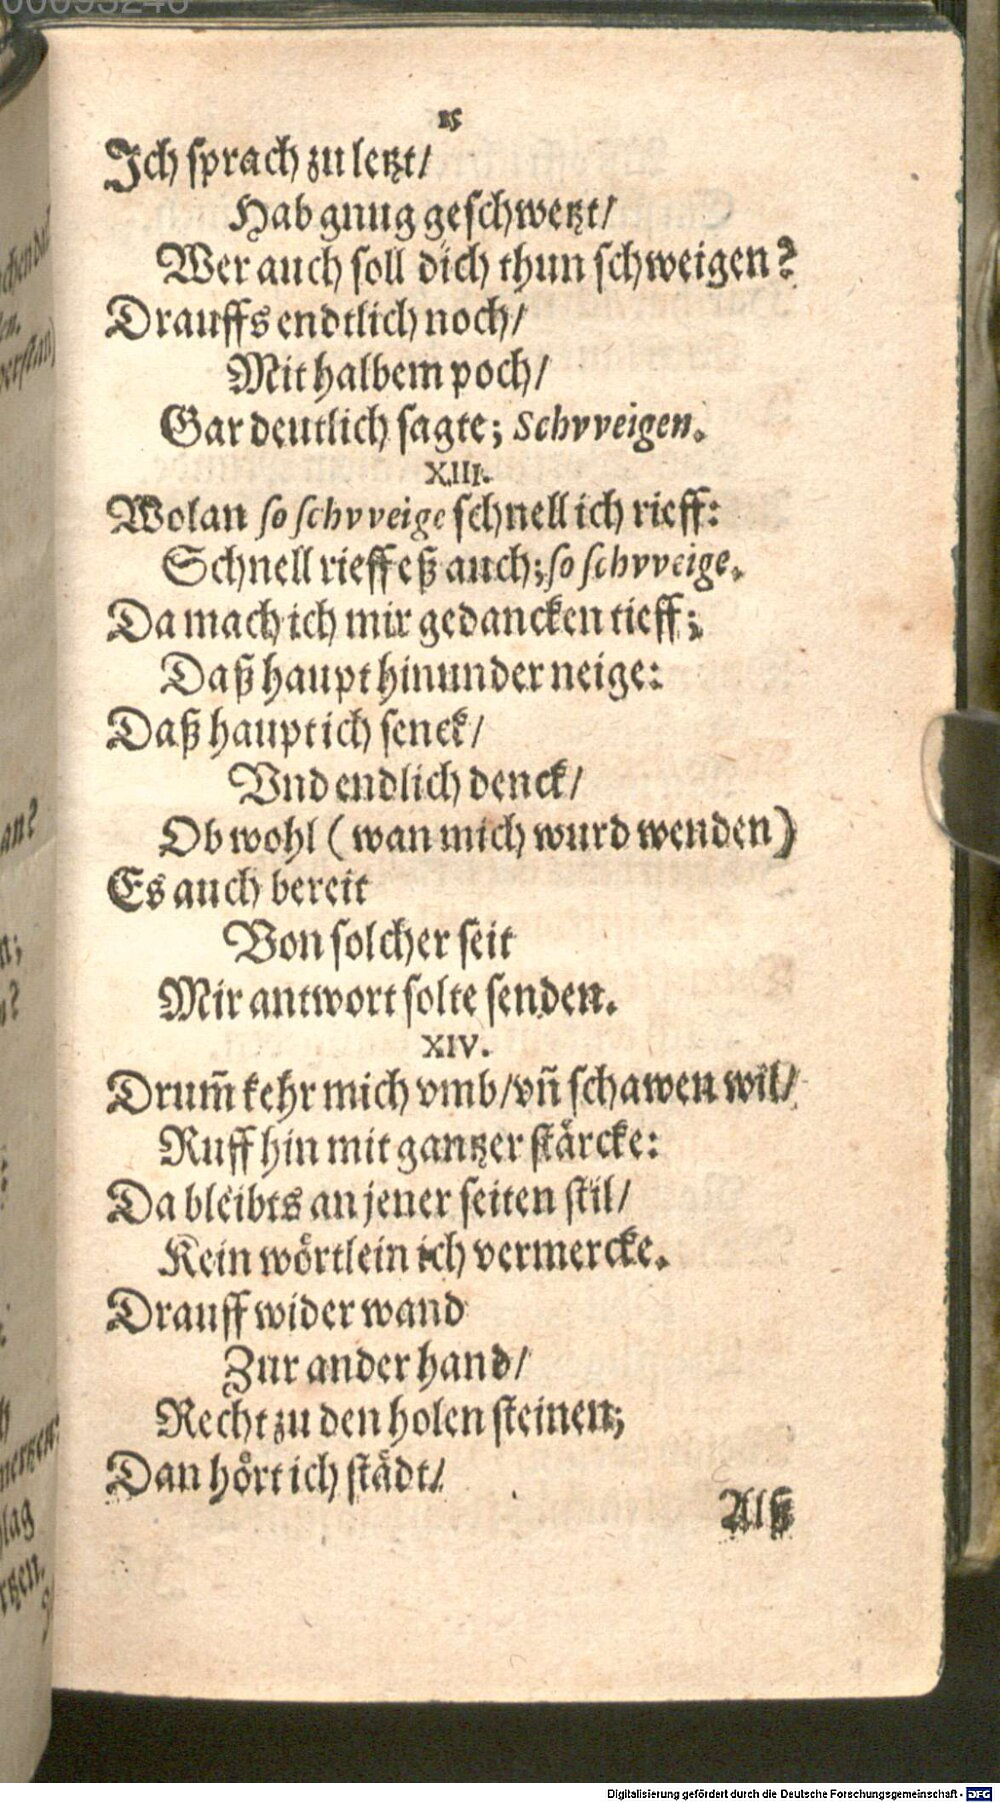 00095246
15
Ich sprach zu letzt/
Hab gnug geschwetzt/
Wer auch soll dich thun schweigen?
Drauffs endtlich noch/
Mit halbem poch/
Gar deutlich sagte; Schvveigen.
XIII.
Wolan so schvveige schnell ich rieff:
Schnell rieff eß auch; so schvveige.
Da mach ich mir gedancken tieff;
Daß haupt hinunder neige:
Daß haupt ich senck/
Vnd endlich denck/
Ob wohl (wan mich wurd wenden)
Es auch bereit
Von solcher seit
Mir antwort solte senden.
XIV.
Drum̃ kehr mich vmb/ vñ schawen wil/
Ruff hin mit gantzer stärcke:
Da bleibts an jener seiten stil/
Kein wörtlein ich vermercke.
Drauff wider wand
Zur ander hand/
Recht zu den holen steinen;
Dan hört ich städt/
Alß
Digitalisierung gefördert durch die Deutsche Forschungsgemeinschaft - DFG